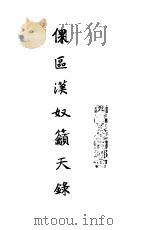 儻區漢奴籲天錄
mtoou.info